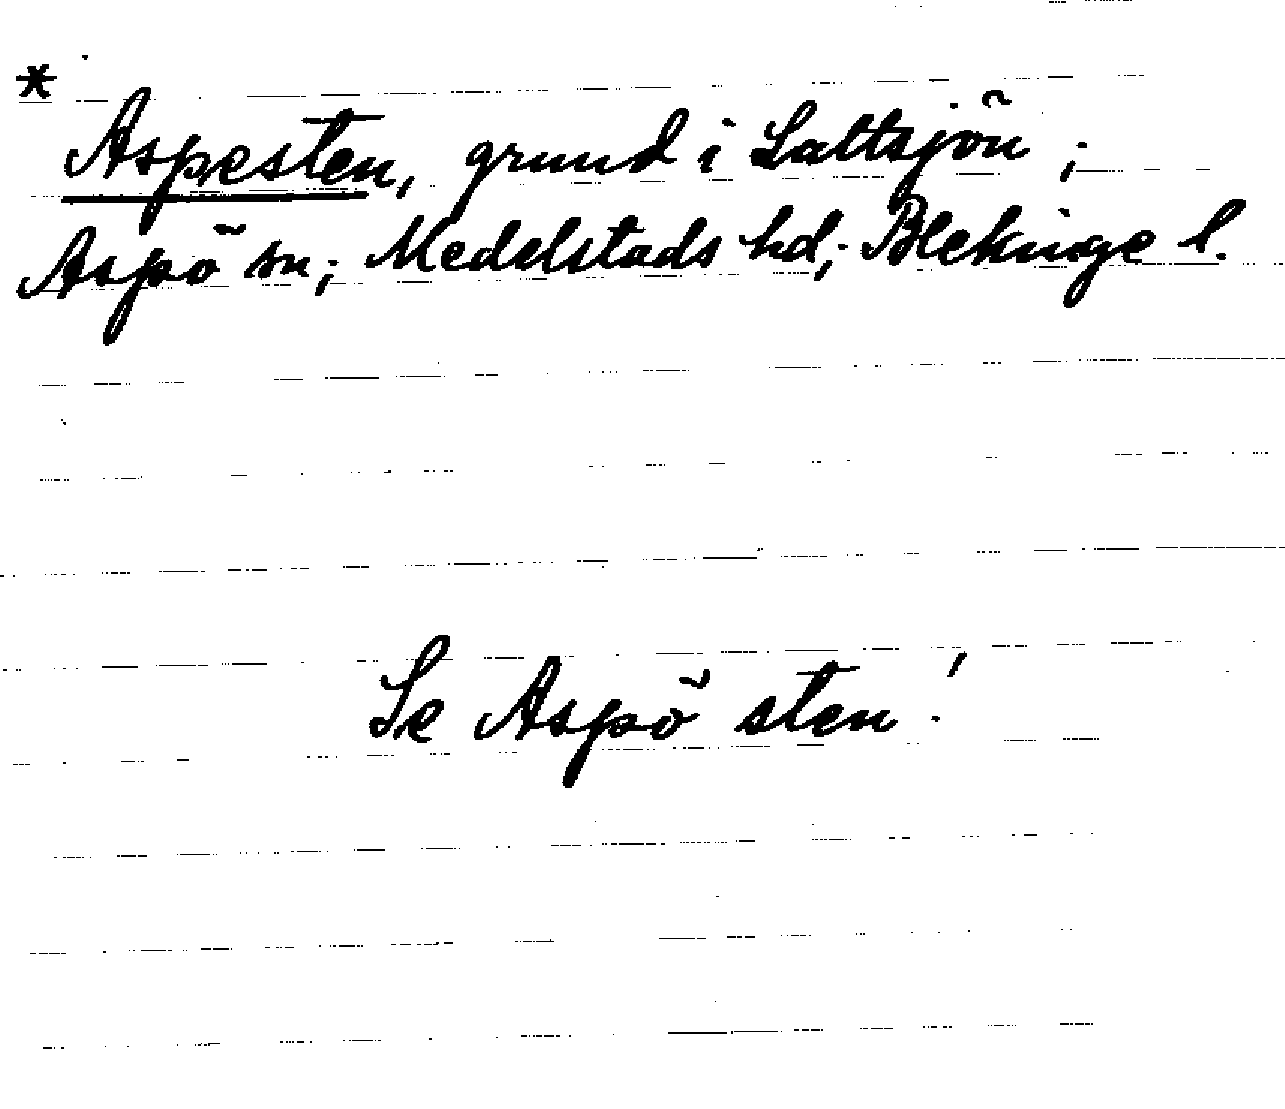 *
Aspesten, grund i Saltsjön;
Aspö sn; Medelstads hd; Blekinge l.
Se Aspö sten!